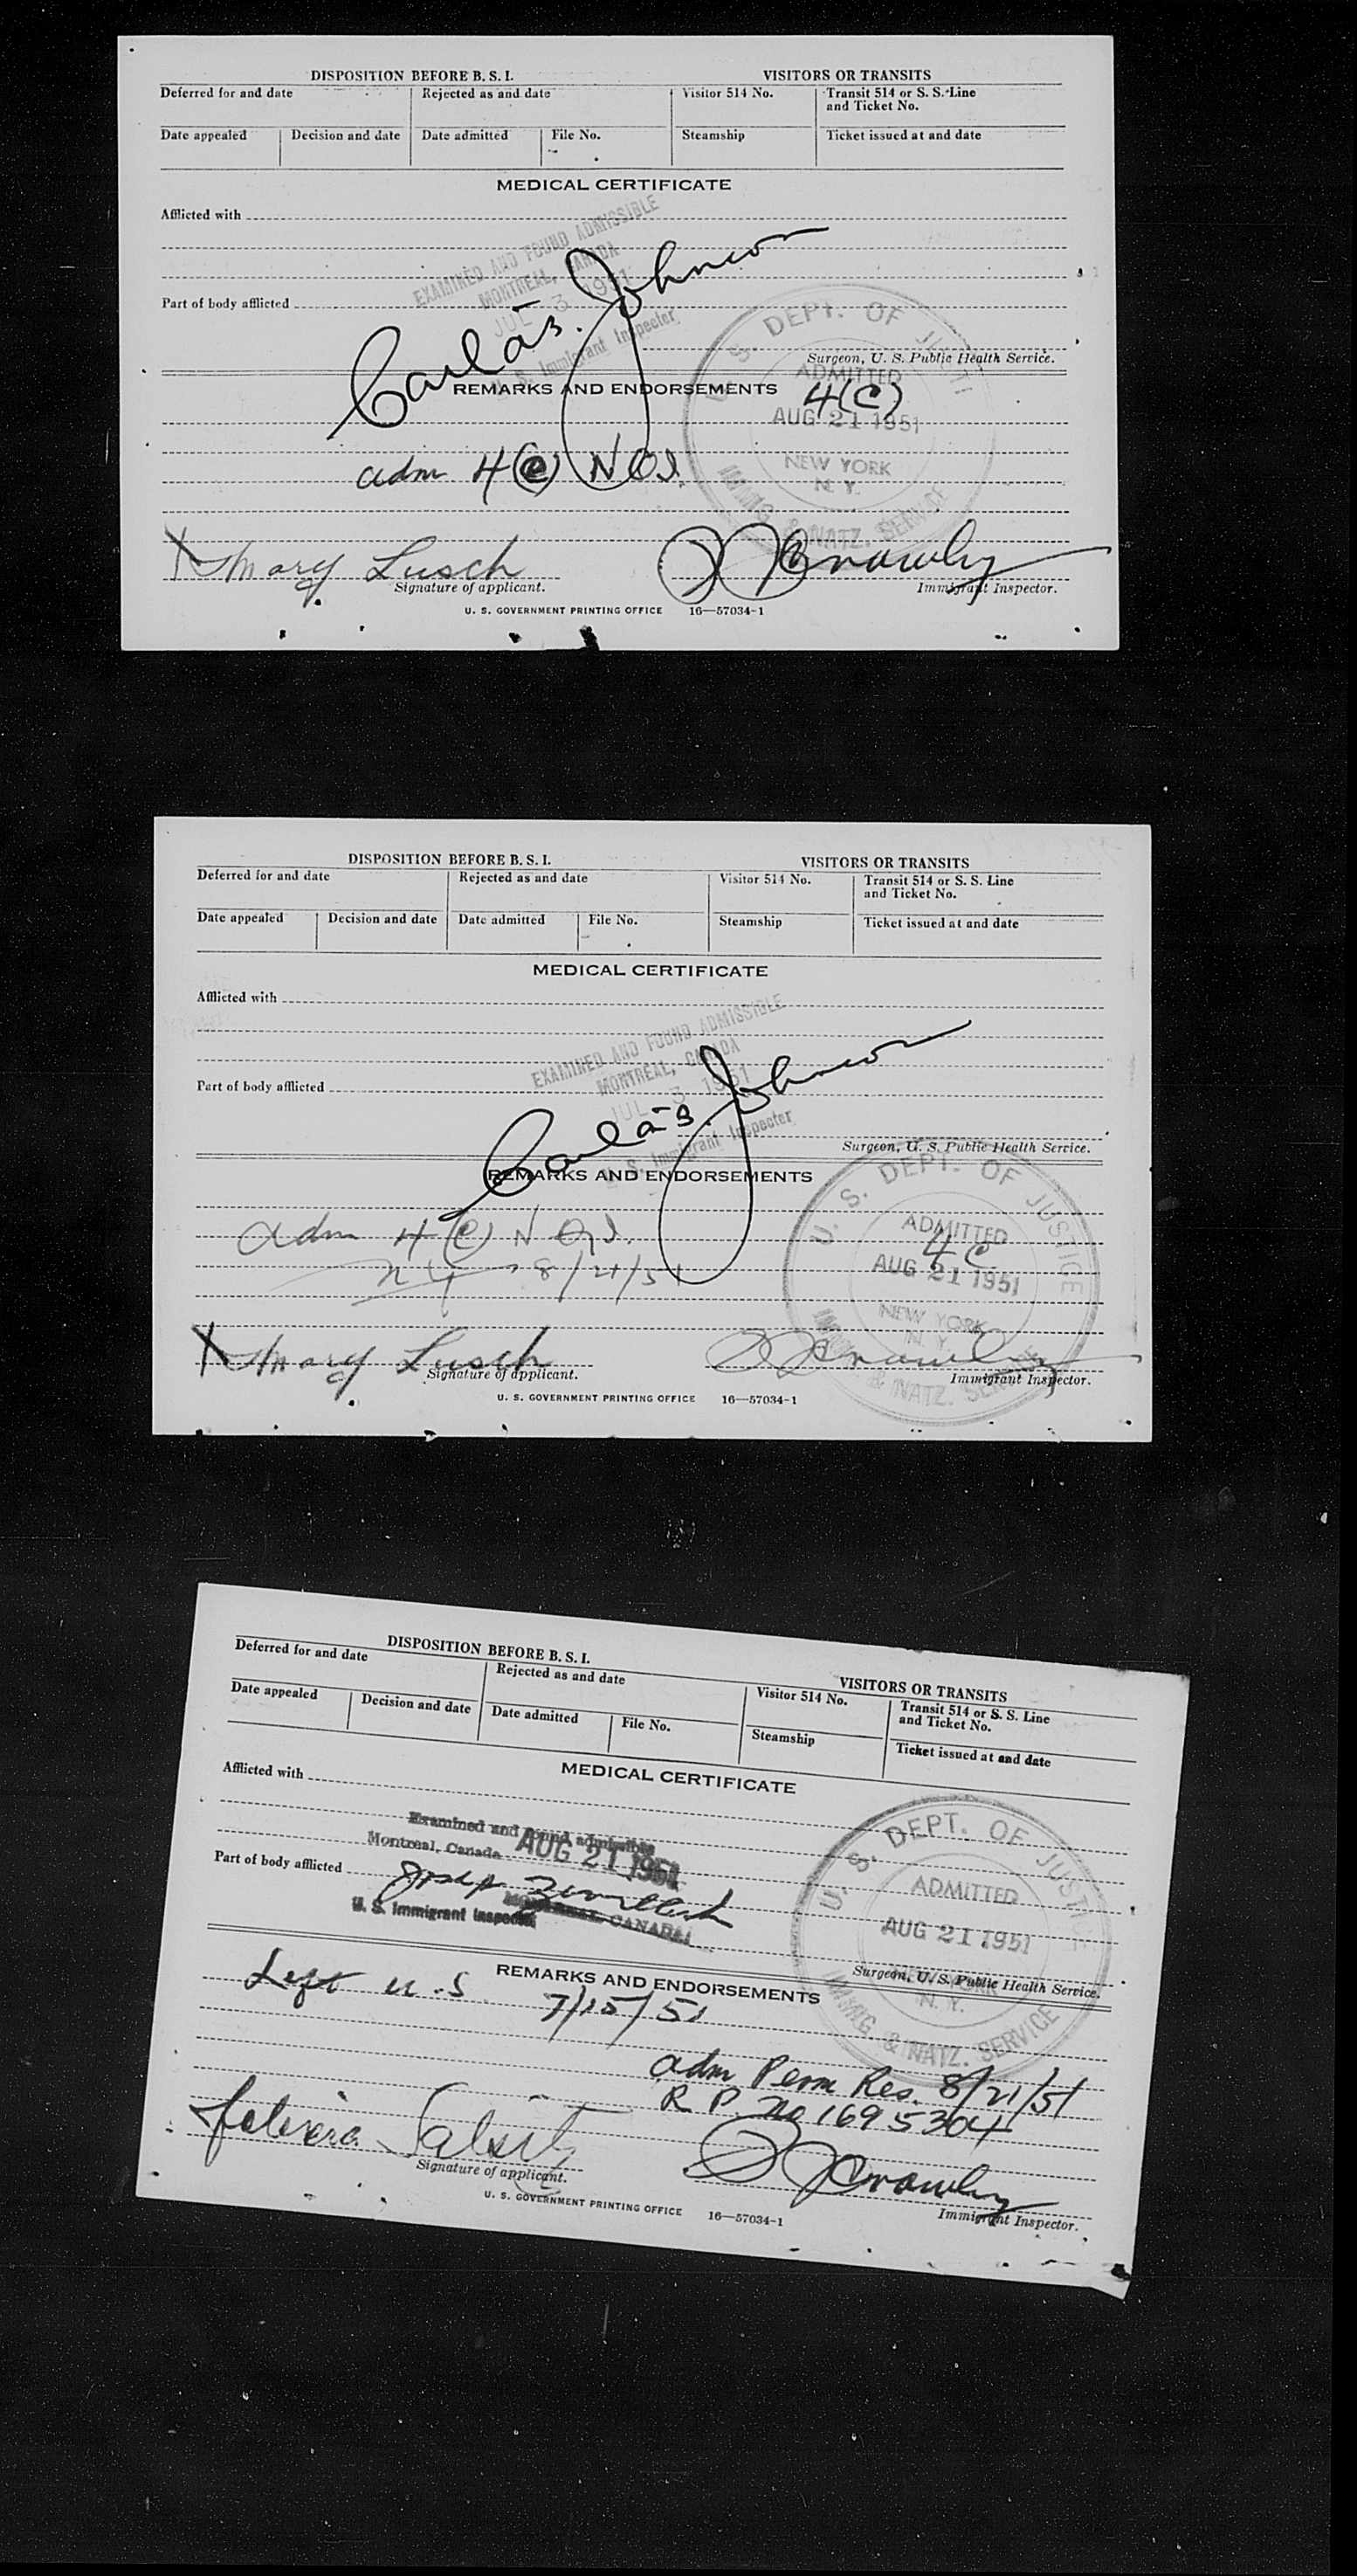 DISPOSITION BEFORE B. S. I.
VISITORS OR TRANSITS
Deferred for and date
Rejected as and date
Visitor 514 No.
Transit 514 or S. S. Line
and Ticket No.
Date appealed
Decision and date
Date admitted
File No.
Steamship
Ticket issued at and date
MEDICAL CERTIFICATE
Afflicted with
EXAMINED AND FOUND ADMISSIBLE
MONTREAL, CANADA
JUL 3 1951
U. S. Immigrant Inspector
Johnson
Part of body afflicted
U. S. DEPT. OF JUSTI
Surgeon, U. S. Public Health Service.
REMARKS AND ENDORSEMENTS
ADMITTED
4(C)
AUG 21 1951
NEW YORK
N. Y.
IMMIG. & NATZ. SERVICE
adm 4(C)
X Mary Lusch
Signature of applicant.
Immigrant Inspector.
U. S. GOVERNMENT PRINTING OFFICE 16—57034-1
DISPOSITION BEFORE B. S. I.
VISITORS OR TRANSITS
Deferred for and date
Rejected as and date
Visitor 514 No.
Transit 514 or S. S. Line
and Ticket No.
Date appealed
Decision and date
Date admitted
File No.
Steamship
Ticket issued at and date
MEDICAL CERTIFICATE
Afflicted with
EXAMINED AND FOUND ADMISSIBLE
MONTREAL, CANADA
JUL 3 1951
U. S. Immigrant Inspector
Johnson
Part of body afflicted
Surgeon, U. S. Public Health Service.
REMARKS AND ENDORSEMENTS
U. S. DEPT. OF JUSTICE
ADMITTED
4C
AUG 21 1951
NEW YORK
N. Y.
& NATZ. SERVICE
adm 4(C)
NY 8/21/51
X Mary Lusch
Signature of applicant.
Immigrant Inspector.
U. S. GOVERNMENT PRINTING OFFICE 16—57034-1
DISPOSITION BEFORE B. S. I.
VISITORS OR TRANSITS
Deferred for and date
Rejected as and date
Visitor 514 No.
Transit 514 or S. S. Line
and Ticket No.
Date appealed
Decision and date
Date admitted
File No.
Steamship
Ticket issued at and date
MEDICAL CERTIFICATE
Afflicted with
Examined and found admissible
Montreal, Canada
AUG 21 1951
Part of body afflicted
Joseph
U. S. Immigrant Inspector
MONTREAL, CANADA
U. S. DEPT. OF JUSTICE
ADMITTED
AUG 21 1951
NEW YORK
N. Y.
IMMIG. & NATZ. SERVICE
Surgeon, U. S. Public Health Service.
REMARKS AND ENDORSEMENTS
Left U.S. 7/15/51
adm Perm Res. 8/21/51
R. P. No 1695304
Signature of applicant.
Immigrant Inspector.
U. S. GOVERNMENT PRINTING OFFICE 16—57034-1